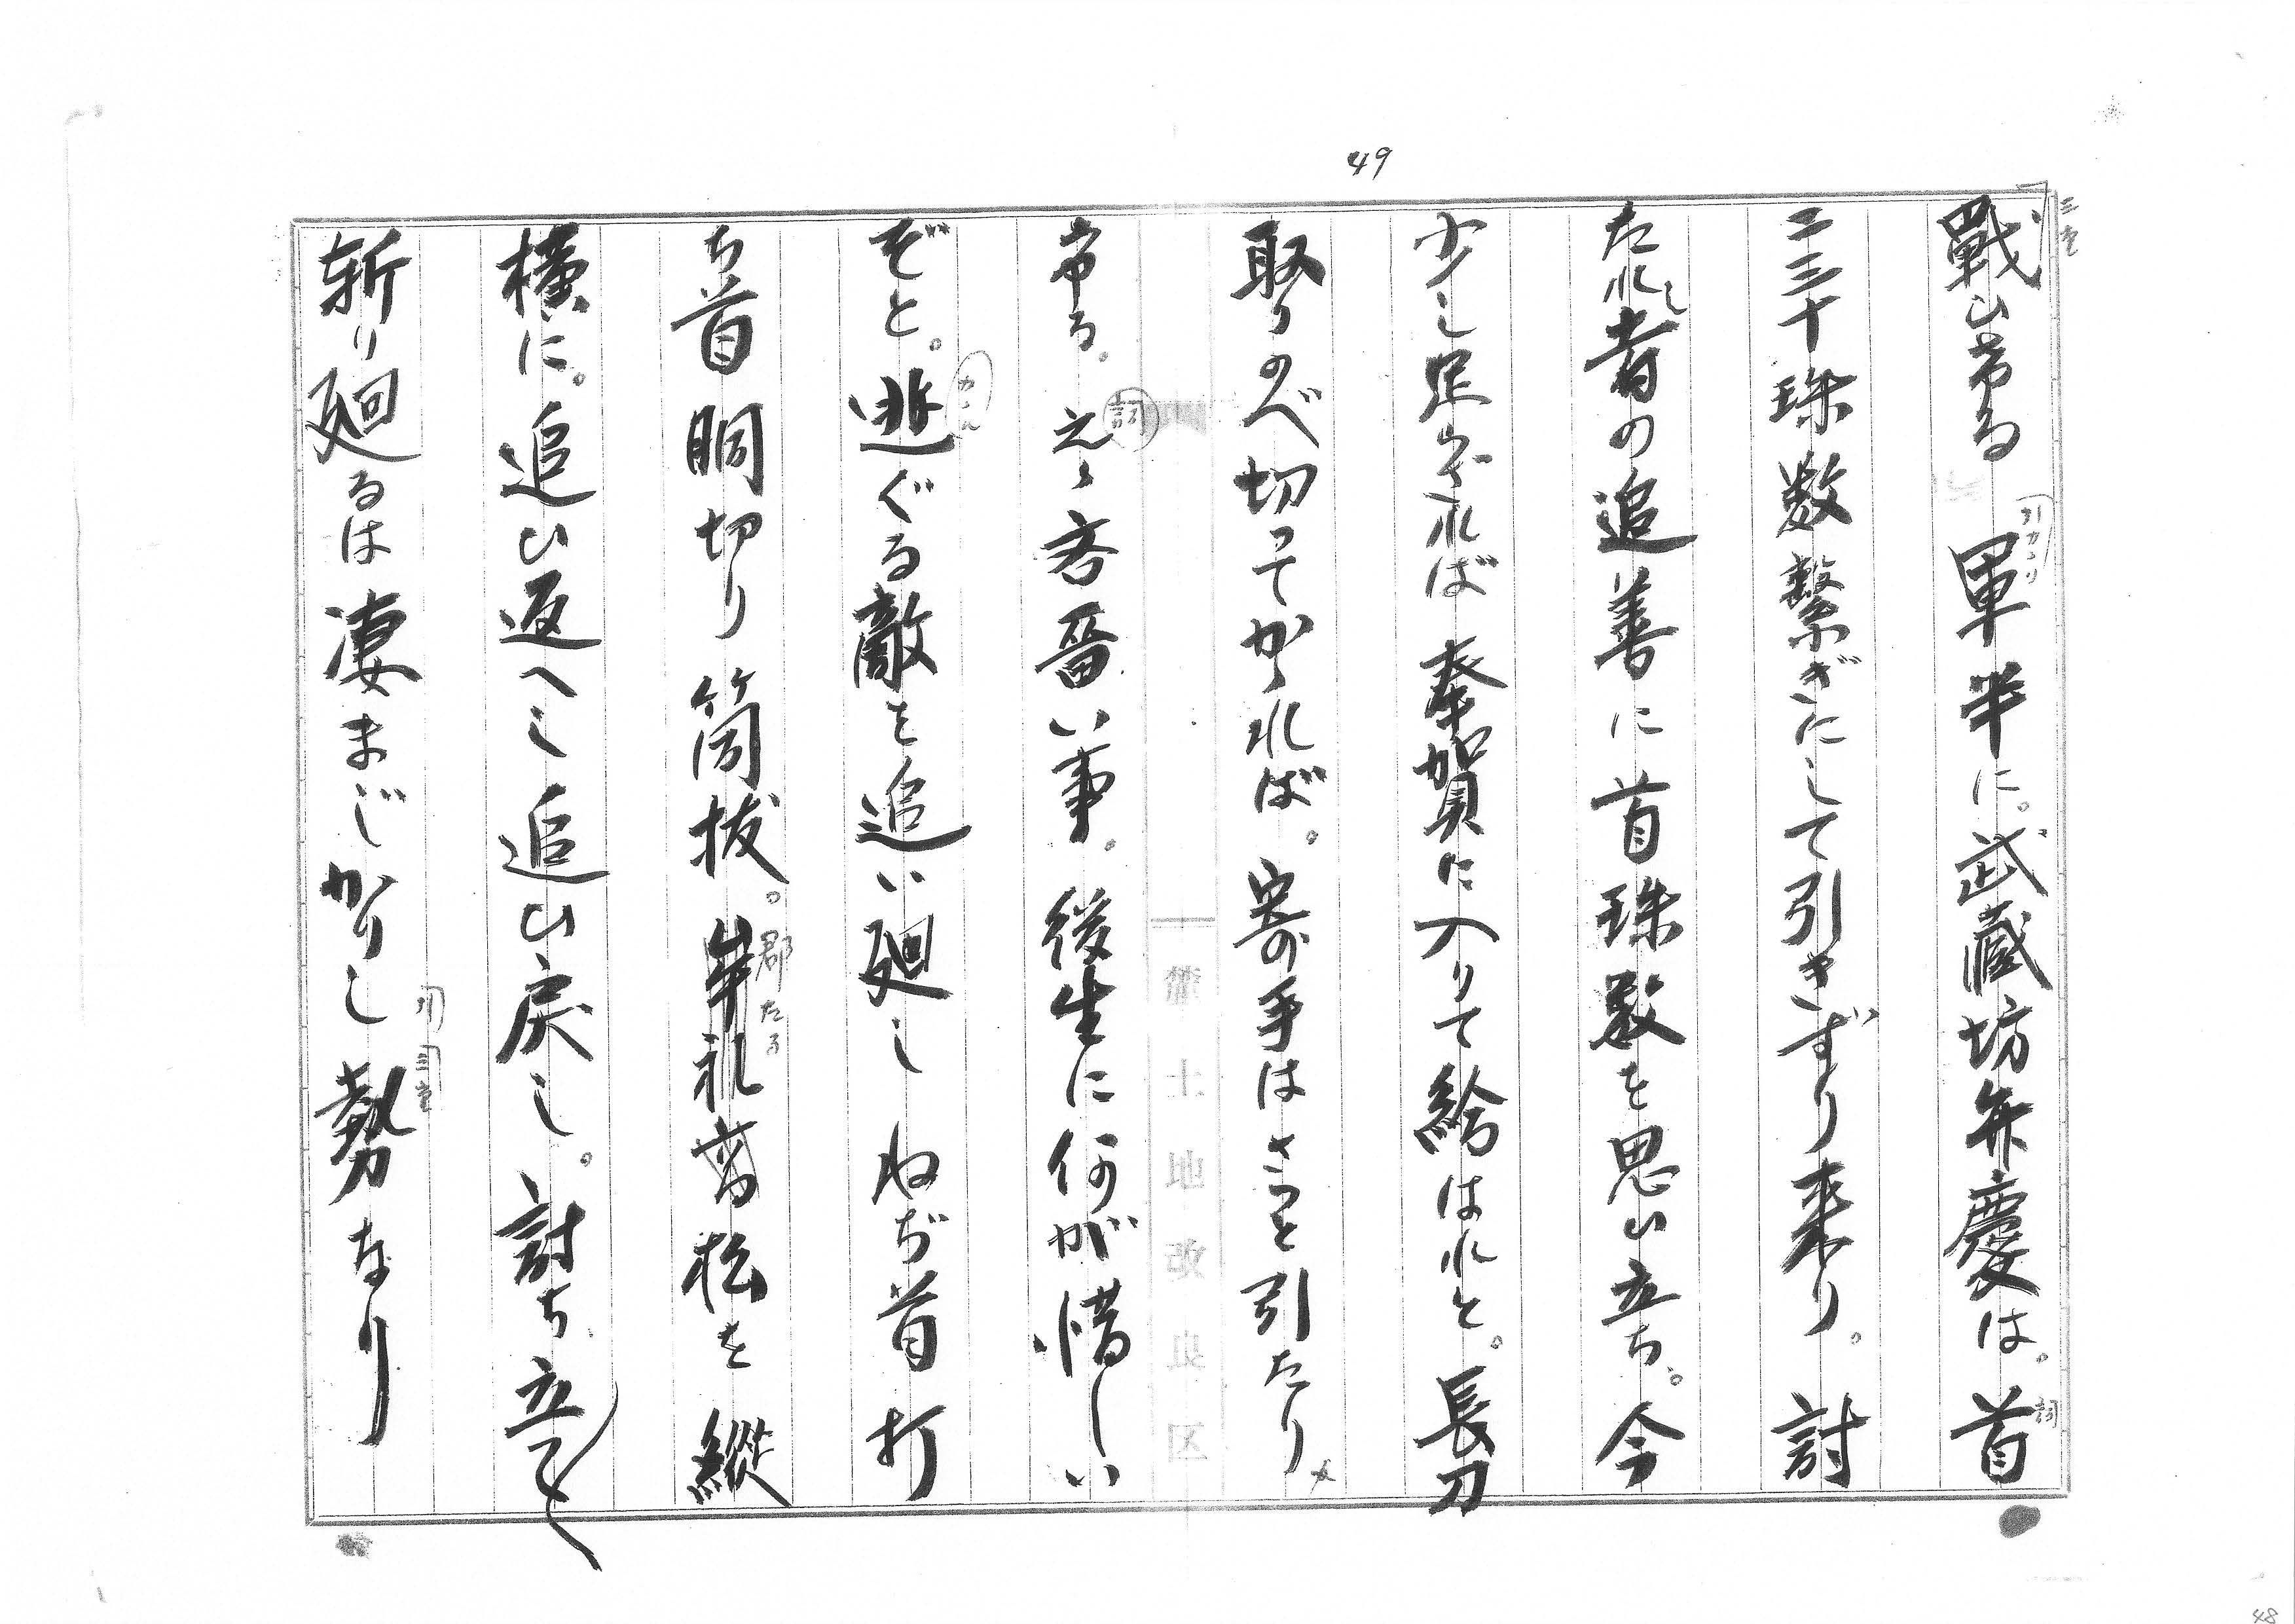 49
二重
戰ひ居る 軍半に。武蔵坊弁慶は。首
詞
二三十珠数繋ぎにして引きずり来り。討
たれし者の追善に首珠数を思ひ立ち。今
少し足らざれば奉賀に入りて給はれと。長刀
取りのべ切ってかゝれば。寄手はさっと引たり
詞
居る。えゝ吝嗇い事。後生に何が惜しい
ぞと。逃ぐる敵を追い廻し ねぢ首打
ち首胴切り筒抜。群礼高松を縦
郡たる
横に。追ひ返へし追ひ戻し。討ち立て〱
斬り廻るは凄まじかりし勢なり
三重
48